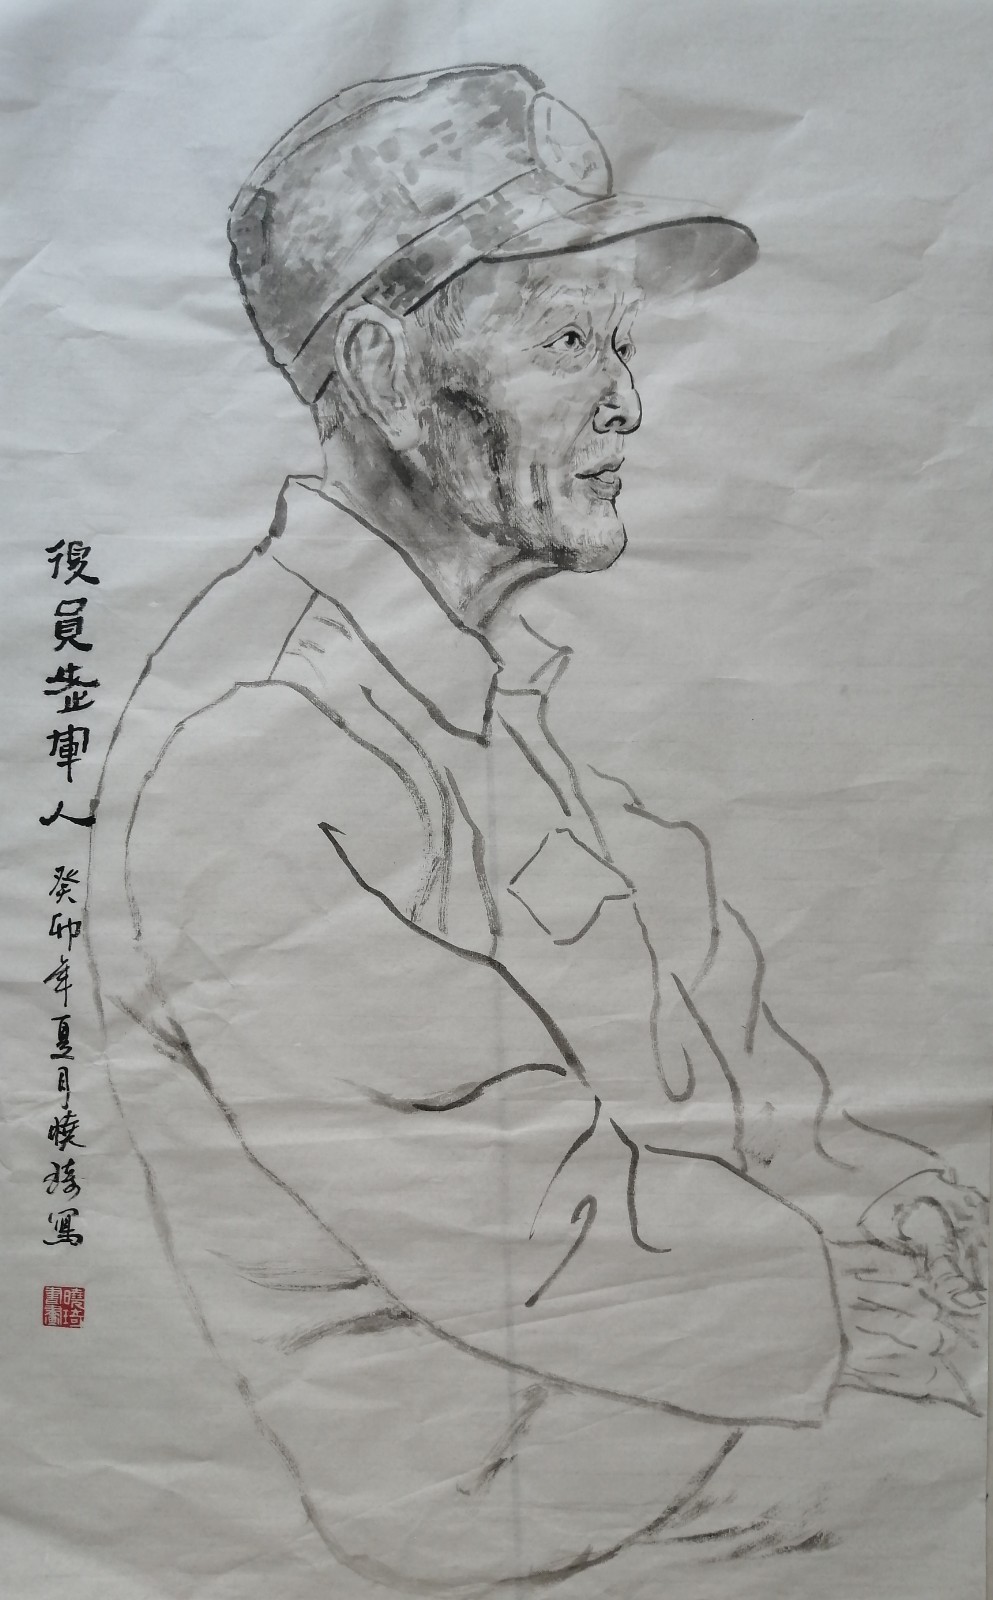 復員老軍人
癸卯年夏月曉琦寫
曉琦書畫